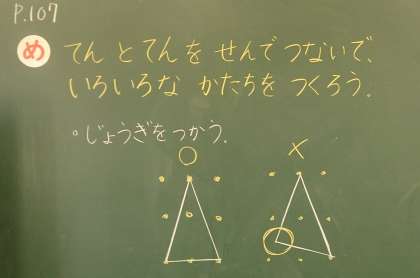 P.107
め てん と てんを せんで つないで、
いろいろな かたちを つくろう。
○じょうぎをつかう。
○ ×